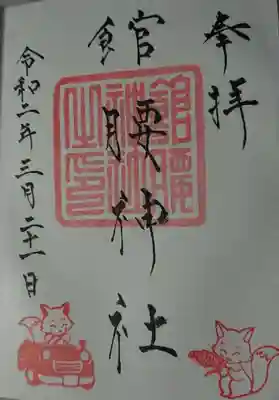 奉拝
館腰神社
令和二年三月二十一日
館腰神社之印